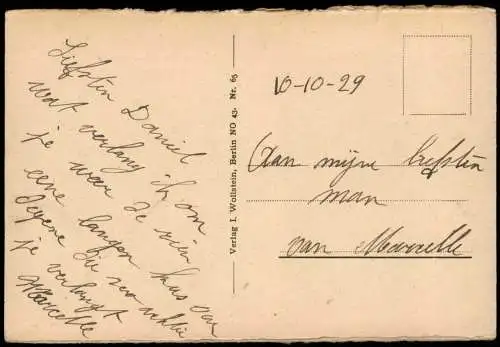 Liefsten Daniel
wat verlang ik om
je weer te zien
eene langen kus van
Degene die
je verlangt
Marcelle
Verlag J. Wollstein, Berlin NO 43. Nr. 65
10-10-29
Aan mijne liefsten
man
van Marcelle